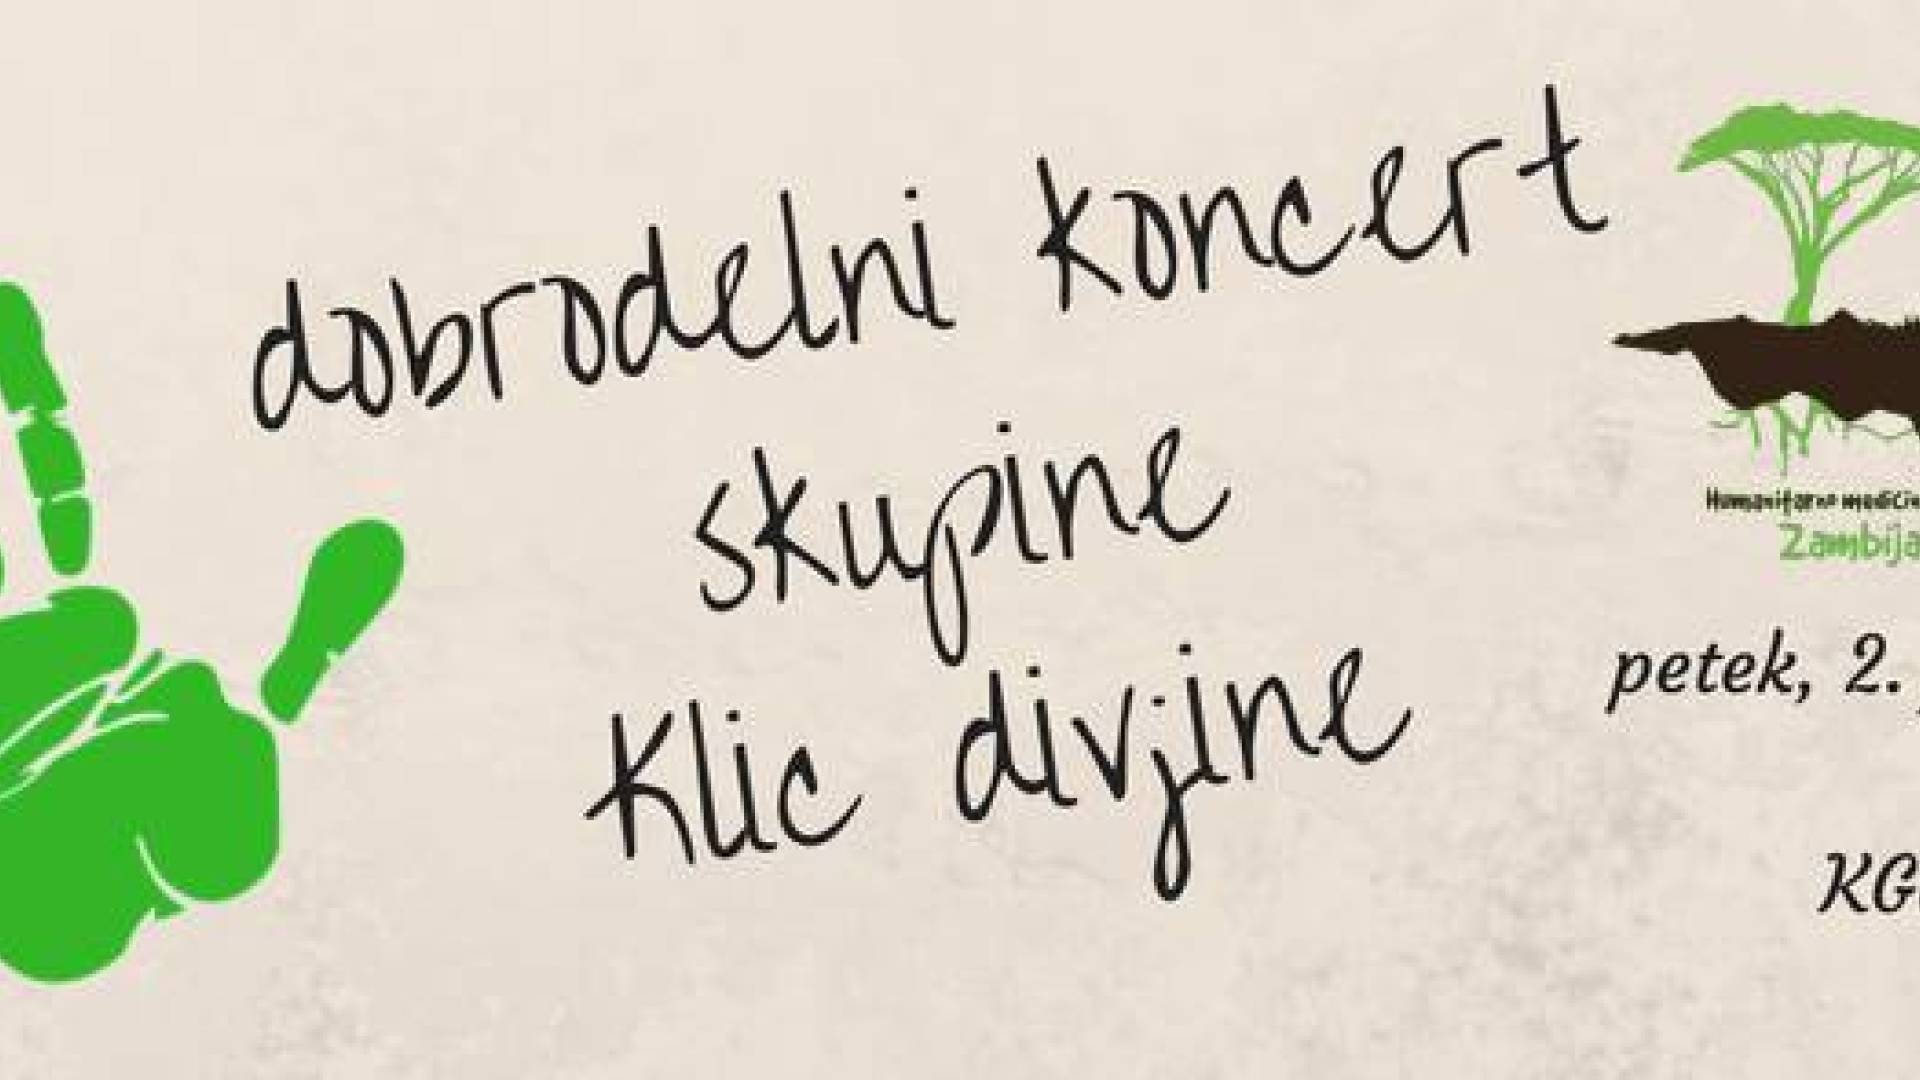 dobrodelni koncert
skupine
Klic divjine
Humanitarno
Zambija
petek, 2.